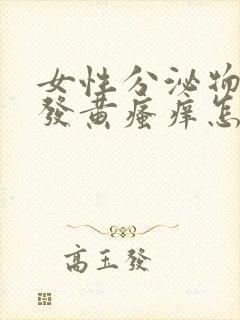 女性分泌物
發黄瘙痒怎
高玉發